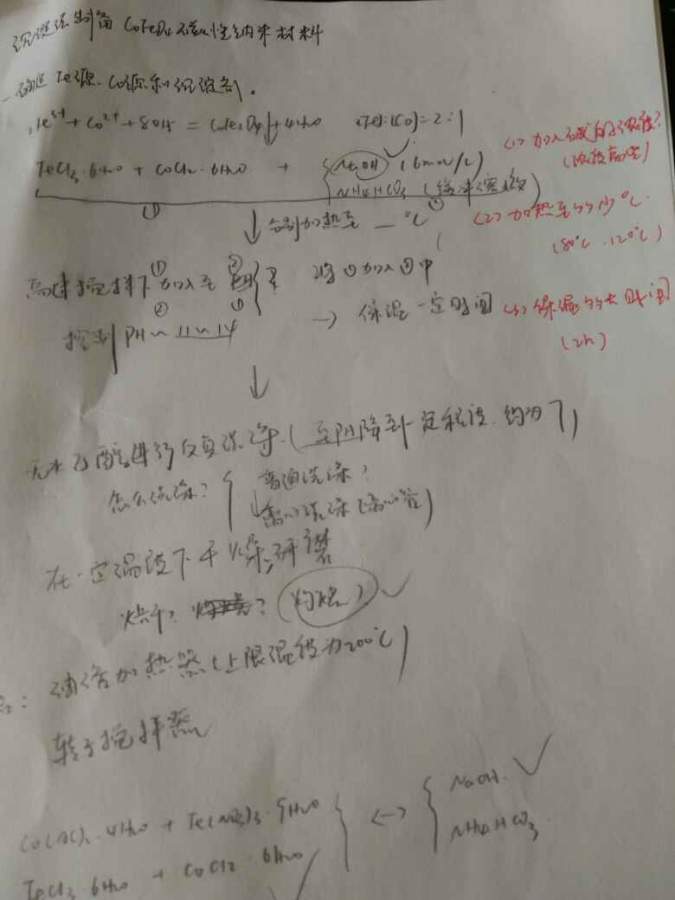 沉淀法制备CoFe2O4磁性纳米材料
一、确定Fe源、Co源和沉淀剂.
2Fe3+ + Co2+ + 8OH- = CoFe2O4↓ + 4H2O (Fe):(Co)=2:1
FeCl3·6H2O + CoCl2·6H2O + { NaOH (6mol/L)
NH4HCO3 (缓冲溶液)
(1) 加入碱的浓度?
① ②
↓ 分别加热至 — °C
(2) 加热至约多少°C
(80°C 120°C)
高速搅拌下 ①加入至②
将①加入②中
控制PH~11~14
→ 保温一定时间 (3) 保温约大时间
(2h)
↓
无水乙醇进行反复洗净. (至PH降到一定程度. 约为7)
怎么洗涤? { 普通洗涤?
离心洗涤 (离心管)
在一定温度下干燥,研磨
烘干? ? (灼烧) ✓
油浴加热器 (上限温度为200°C)
转子搅拌器
Co(AC)2·4H2O + Fe(NO3)3·9H2O } <-> { NaOH. ✓
FeCl3·6H2O + CoCl2·6H2O ✓ NH4HCO3